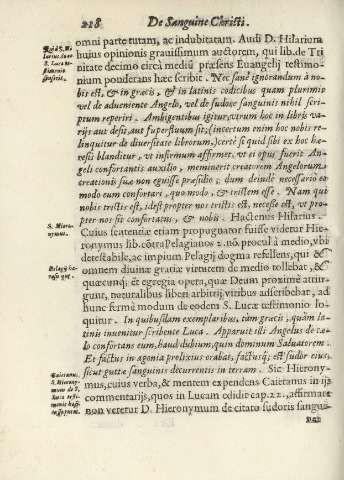 218
De Sanguine Christi.
omni parte tutam, ac indubitatam. Audi D. Hilarium
huius opinionis grauissimum auctorem, qui lib. de Tri
nitate decimo circà mediũ præsens Euangelij testimo-
nium ponderans hæc scribit. Nec sanè ignorandum à no-
bis est, & in græcis, & in latinis codicibus quam plurimis
vel de adueniente Angelo, vel de sudore sanguinis nihil scri-
ptum reperiri. Ambigentibus igitur, vtrum hoc in libris va-
rijs aut desit, aut superfluum sit; (incertum enim hoc nobis re-
linquitur de diuersitate librorum,) certè si quid sibi ex hoc hæ-
resis blanditur, vt infirmum affirmet, vt ei opus fuerit An-
geli confortantis auxilio, meminerit creatorem Angelorum,
creationis suæ non eguisse præsidio; tum deindè necessariò eo
modo eum confortari, quo modo, & tristem esse. Nam qui
nobis tristis est, idest propter nos tristis est, necesse est, vt pro-
pter nos sit confortatus, & nobis. Hactenus Hilarius.
Cuius sententiæ etiam propugnator fuisse videtur Hie-
ronymus lib. cõtra Pelagianos 2. nõ. procul à medio, vbi
detestabile, ac impium Pelagij dogma refellens, qui &
omnem diuinæ gratiæ virtutem de medio tollebat, &
quæcunq; et egregia opera, quæ Deum proximè attin-
gunt, naturalibus liberi arbitrij viribus adscribebat, ad
hunc fermè modum de eodem S. Lucæ testimonio lo-
quitur. In quibusdam exemplaribus, tàm græcis, quàm la-
tinis inuenitur scribente Luca. Apparuit illi Angelus de cæ-
lo confortans eum, haud dubium, quin dominum Saluatorem.
Et factus in agonia prolixius orabat, factusq; est sudor eius,
sicut guttæ sanguinis decurrentis in terram. Sic Hierony-
mus, cuius verba, & mentem expendens Caietanus in ijs
commentarijs, quos in Lucam edidit cap. 22., affirmare
non veretur D. Hieronymum de citato sudoris sanguis-
S. Hiero-
nymus.
Pelagij hæ-
resis quæ.
Caietanus.
S. Hierony-
mus de S.